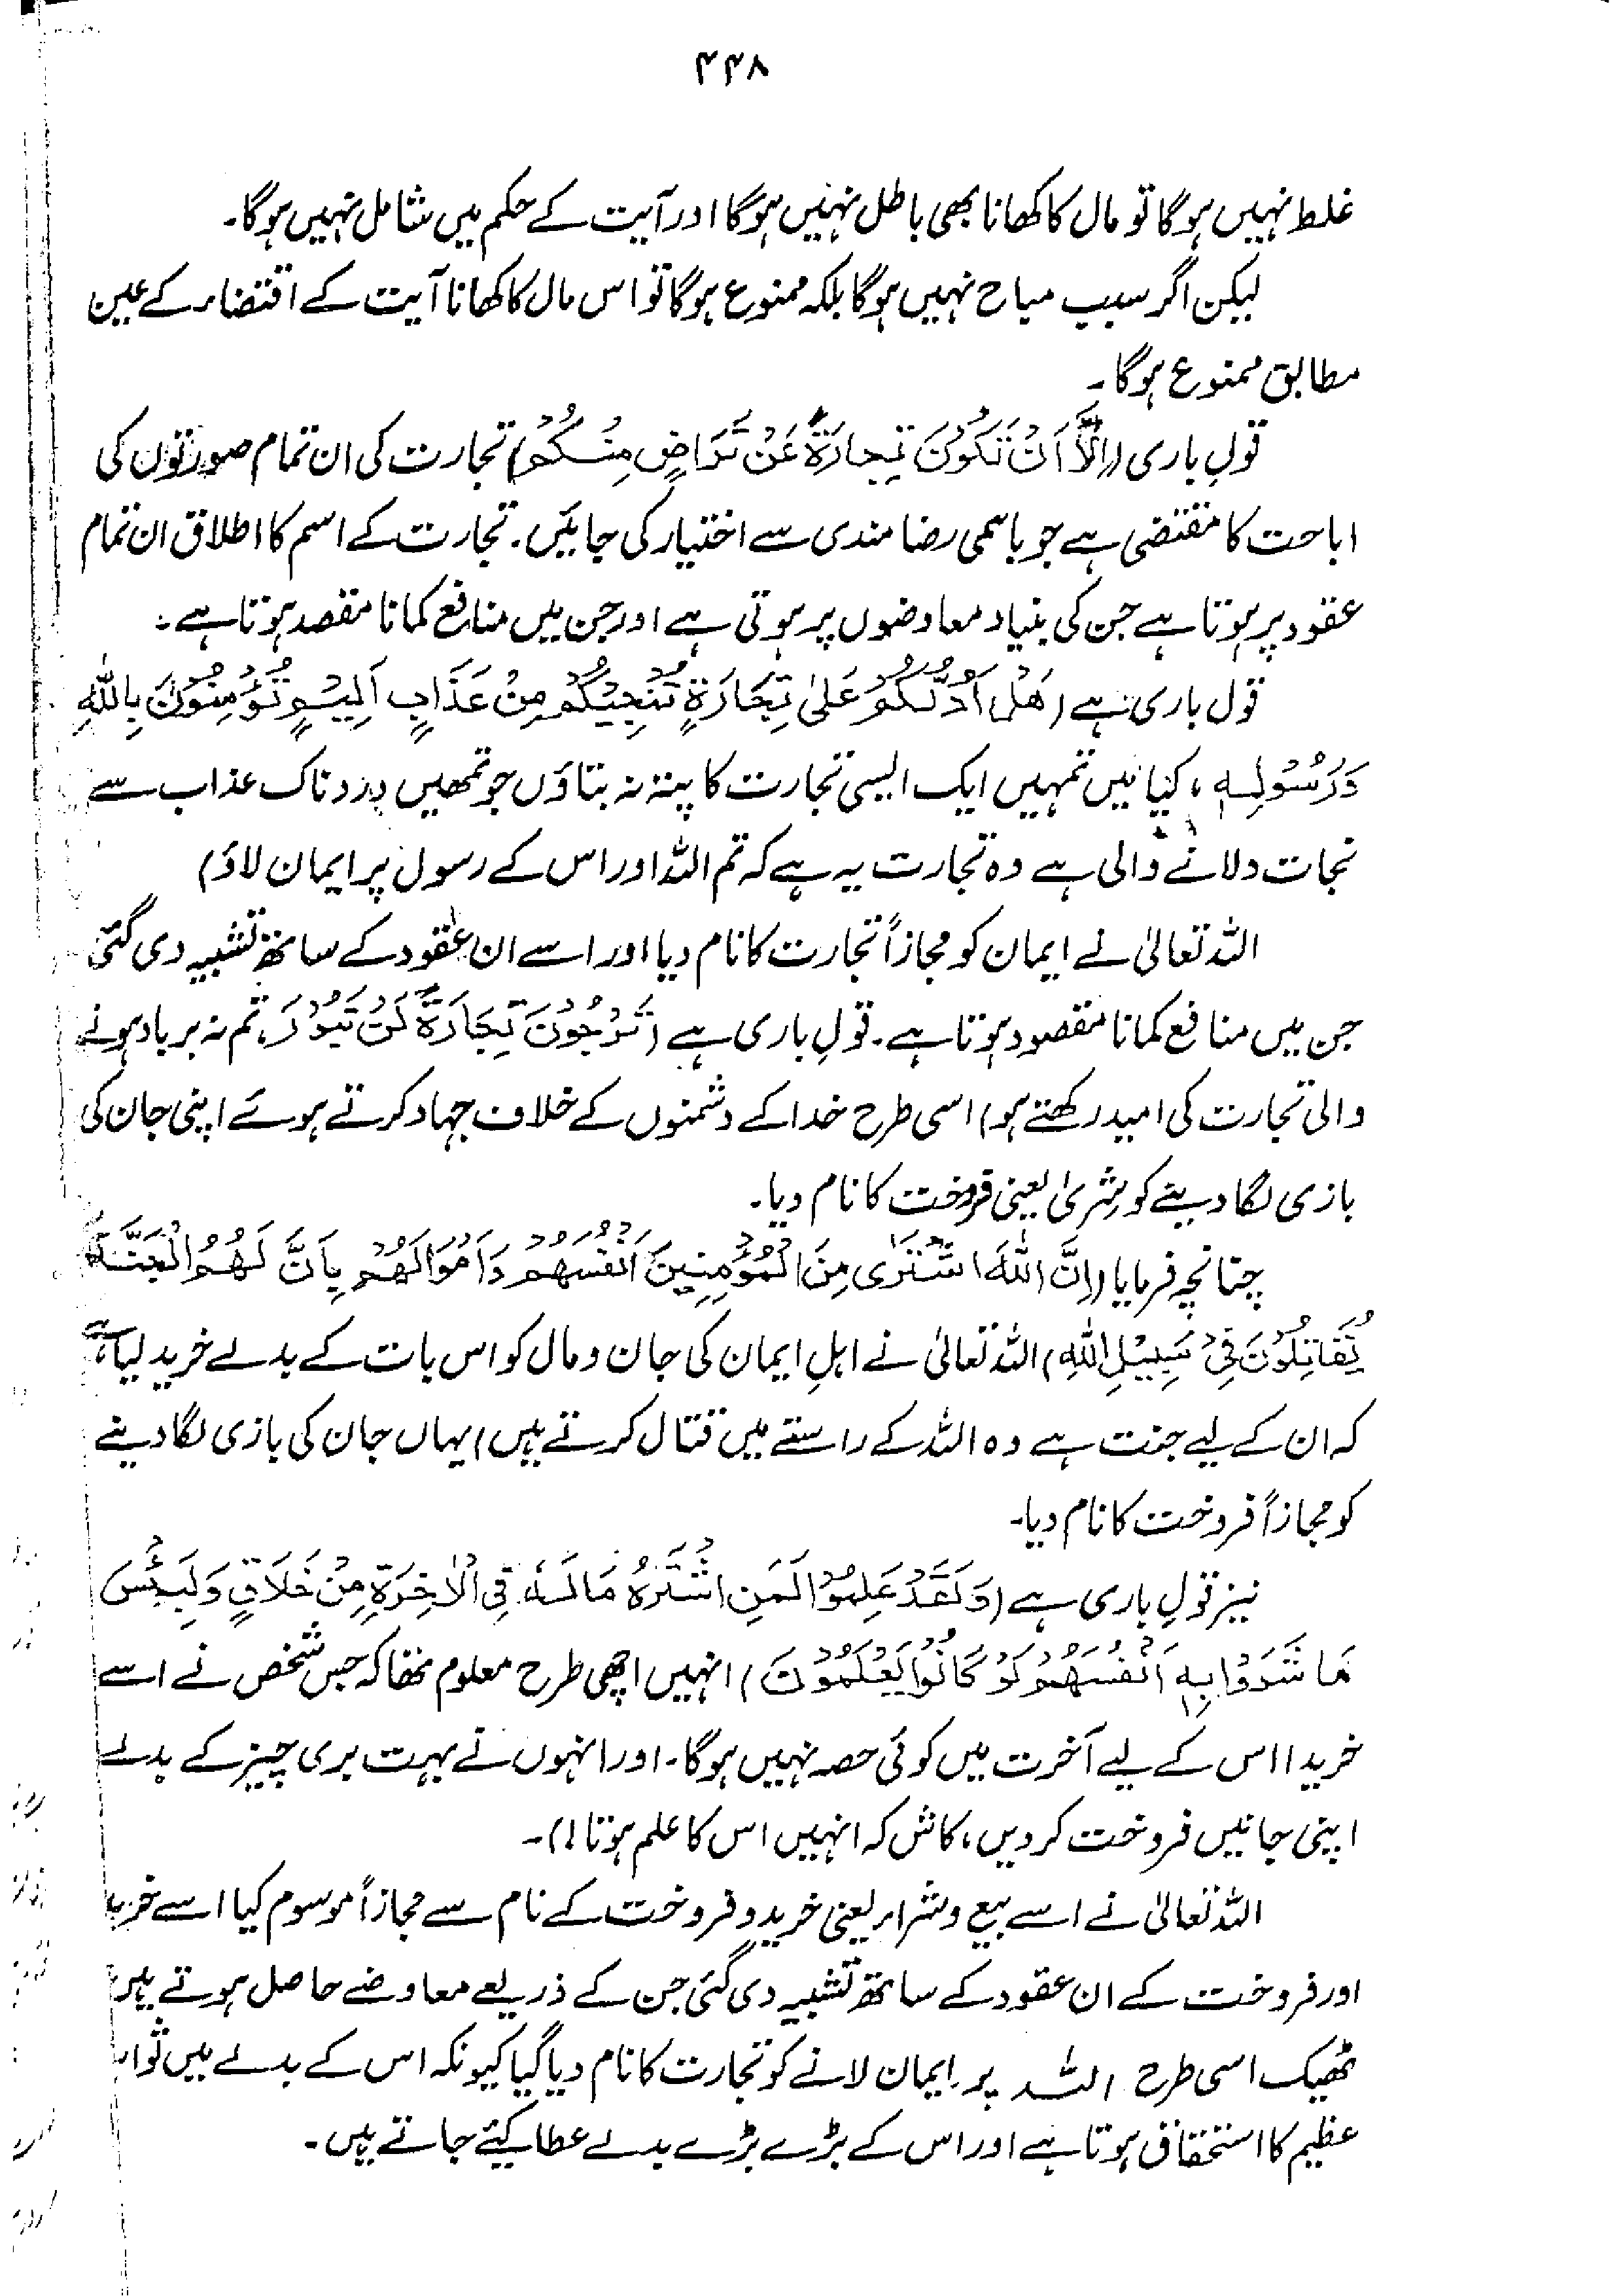 ۴۴۸
غلط نہیں ہوگا تو مال کا کھانا بھی باطل نہیں ہوگا اور آیت کے حکم میں شامل نہیں ہوگا۔
لیکن اگر سبب مباح نہیں ہوگا بلکہ ممنوع ہوگا تو اس مال کا کھانا آیت کے اقتضاء کے عین
مطابق ممنوع ہوگا۔
قولِ باری (اِلَّا اَنْ تَكُوْنَ تِجَارَةً عَنْ تَرَاضٍ مِنْكُمْ) تجارت کی ان تمام صورتوں کی
اباحت کا مقتضی ہے جو باہمی رضا مندی سے اختیار کی جائیں۔ تجارت کے اسم کا اطلاق ان تمام
عقود پر ہوتا ہے جن کی بنیاد معاوضوں پر ہوتی ہے اور جن میں منافع کمانا مقصد ہوتا ہے۔
قول باری ہے (هَلْ اَدُلُّكُمْ عَلٰى تِجَارَةٍ تُنْجِيْكُمْ مِنْ عَذَابٍ اَلِيْمٍ تُؤْمِنُوْنَ بِاللّٰهِ
وَرَسُوْلِهٖ، کیا میں تمہیں ایک ایسی تجارت کا پتہ نہ بتاؤں جو تمھیں دردناک عذاب سے
نجات دلانے والی ہے وہ تجارت یہ ہے کہ تم اللہ اور اس کے رسول پر ایمان لاؤ)
اللہ تعالیٰ نے ایمان کو مجازاً تجارت کا نام دیا اور اسے ان عقود کے ساتھ تشبیہ دی گئی
جن میں منافع کمانا مقصود ہوتا ہے۔ قولِ باری ہے (تَرْجُوْنَ تِجَارَةً لَنْ تَبُوْرَ، تم نہ برباد ہونے
والی تجارت کی امید رکھتے ہو) اسی طرح خدا کے دشمنوں کے خلاف جہاد کرتے ہوئے اپنی جان کی
بازی لگا دینے کو شِریٰ یعنی فروخت کا نام دیا۔
چنانچہ فرمایا (اِنَّ اللّٰهَ اشْتَرٰى مِنَ الْمُؤْمِنِيْنَ اَنْفُسَهُمْ وَاَمْوَالَهُمْ بِاَنَّ لَهُمُ الْجَنَّةَ
يُقَاتِلُوْنَ فِيْ سَبِيْلِ اللّٰهِ) اللہ تعالیٰ نے اہلِ ایمان کی جان و مال کو اس بات کے بدلے خرید لیا ہے
کہ ان کے لیے جنت ہے وہ اللہ کے راستے میں قتال کرتے ہیں) یہاں جان کی بازی لگا دینے
کو مجازاً فروخت کا نام دیا۔
نیز قولِ باری ہے (وَلَقَدْ عَلِمُوْا لَمَنِ اشْتَرٰهُ مَا لَهٗ فِي الْاٰخِرَةِ مِنْ خَلَاقٍ وَلَبِئْسَ
مَا شَرَوْا بِهٖ اَنْفُسَهُمْ لَوْ كَانُوْا يَعْلَمُوْنَ) انہیں اچھی طرح معلوم تھا کہ جس شخص نے اسے
خریدا اس کے لیے آخرت میں کوئی حصہ نہیں ہوگا۔ اور انہوں نے بہت بری چیز کے بدلے
اپنی جانیں فروخت کردیں، کاش کہ انہیں اس کا علم ہوتا!)۔
اللہ تعالیٰ نے اسے بیع و شراء یعنی خرید و فروخت کے نام سے مجازاً موسوم کیا اسے خرید
اور فروخت کے ان عقود کے ساتھ تشبیہ دی گئی جن کے ذریعے معاوضے حاصل ہوتے ہیں
ٹھیک اسی طرح اللہ پر ایمان لانے کو تجارت کا نام دیا گیا کیونکہ اس کے بدلے میں ثواب
عظیم کا استحقاق ہوتا ہے اور اس کے بڑے بڑے بدلے عطا کیئے جاتے ہیں۔